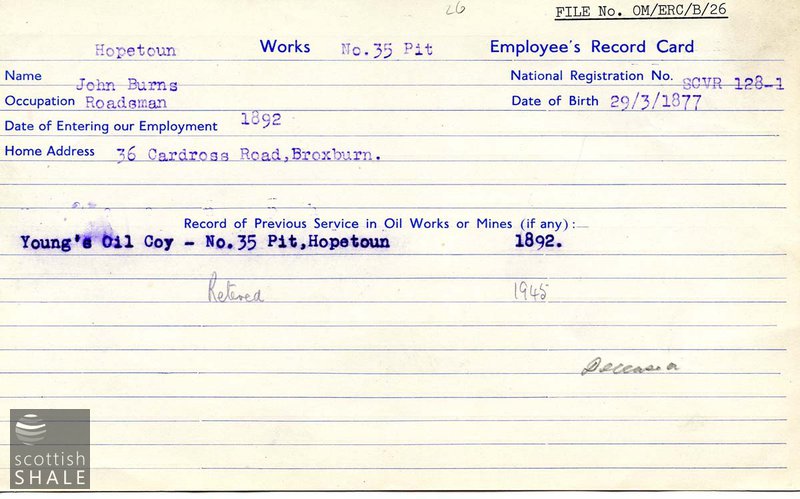 26
FILE No. OM/ERC/B/26
Hopetoun Works No.35 Pit Employee's Record Card
Name John Burns National Registration No. SCVR 128-1
Occupation Roadsman Date of Birth 29/3/1877
Date of Entering our Employment 1892
Home Address 36 Cardross Road,Broxburn.
Record of Previous Service in Oil Works or Mines (if any):
Young's Oil Coy - No.35 Pit,Hopetoun 1892.
Retired 1945
Deceased
scottish
SHALE